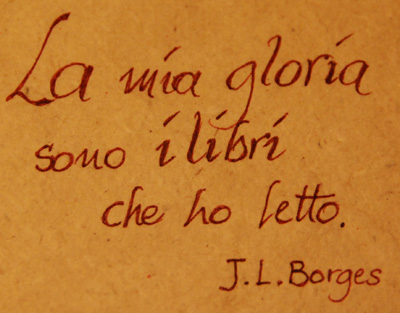 La mia gloria
sono i libri
che ho letto.
J.L.Borges